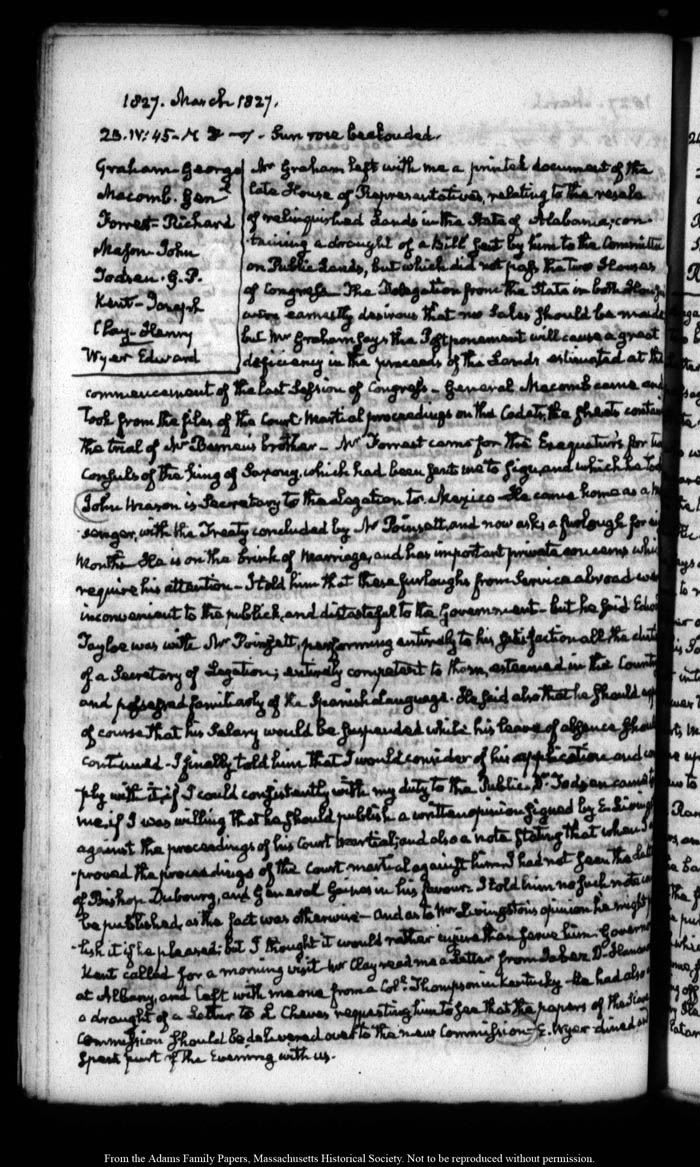 1827. March 1827.
28. IV: 45 - Sun rose beclouded.
Graham - George
Macomb. Genl
Forrest - Richard
Mason - John
Todsen. G. P.
Kent - Joseph
Clay - Henry
Wyer Edward
Mr Graham left with me a printed document of the
late House of Representatives, relating to the resale
of relinquished Lands in the State of Alabama, con-
taining a draught of a Bill sent by him to the Committee
on Public Lands, but which did not pass the two Houses
of Congress. The Delegation from the State in both Houses
were earnestly desirous that no Sales should be made
but Mr Graham says the Postponement will cause a great
deficiency in the proceeds of the Lands estimated at the
commencement of the last Session of Congress - General Macomb came and
took from the files of the Court Martial proceedings on the Cadets, the sheets
the trial of Mr brother - Mr Forrest came for the Exequaturs for two
Consuls of the King of Saxony, which had been sent me to sign, and which he
John Mason is Secretary to the Legation to Mexico - He came home as a
senger, with the Treaty concluded by Mr Poinsett, and now asks a furlough for
Months - He is on the brink of Marriage, and has important private concerns
require his attention - I told him that these furloughs from Service abroad were
inconvenient to the publick, and distasteful to the Government - but he said
Tayloe was with Mr Poinsett, performing entirely to his satisfaction all the
of a Secretary of Legation; entirely competent to them, esteemed in the Country
and possessed familiarly of the Spanish Language. He said also that he should
of course that his Salary would be suspended while his leave of absence
continued - I finally told him that I would consider of his application and
ply with it, if I could consistently with my duty to the Public. Dr Todsen came
me, if I was willing that he should publish a written opinion signed by E.
against the proceedings of his Court Martial; and also a note stating that when I
proved the proceedings of the Court martial against him I had not seen the
of Bishop Dubourg, and General Gaines in his favour. I told him no such note
be published, as the fact was otherwise - And as to Mr Livingston's opinion he might
lish it if he pleased; but I thought it would rather injure than serve him - Governor
Kent called for a morning visit - Mr Clay read me a Letter from Jabez D. Hammond
at Albany, and left with me one from a Coll Thompson in Kentucky - He had also
a draught of a Letter to L Cheves requesting him to see that the papers of the
Commission should be delivered over to the new Commission - E. Wyer dined and
spent part of the Evening with us.
From the Adams Family Papers, Massachusetts Historical Society. Not to be reproduced without permission.